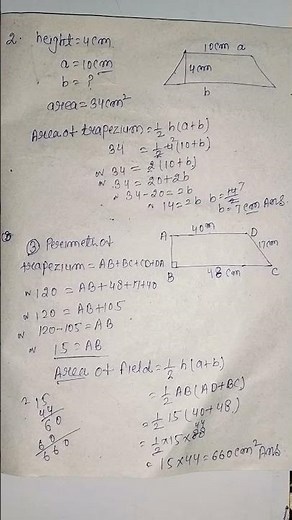 2. height = 4cm
10cm a
a = 10cm
4cm
b = ?
b
area = 34cm²
Area of trapezium = 1/2 h(a+b)
34 = 1/2 4² (10+b)
∝ 34 = 2(10+b)
∝ 34 = 20+2b
∝ 34-20 = 2b
∝ 14 = 2b b = 14 7/2
b = 7 cm Ans.
③ Perimeth of
A 40m D
trapezium = AB+BC+CD+DA
17cm
B 48 cm C
∝ 120 = AB+48+17+40
∝ 120 = AB+105
∝ 120-105 = AB
∝ 15 = AB
Area of field = 1/2 h(a+b)
= 1/2 AB(AD+BC)
= 1/2 15 (40+48)
= 1/2 × 15 × 88 44
= 15×44 = 660cm² Ans.
2 15
44
60
60
660